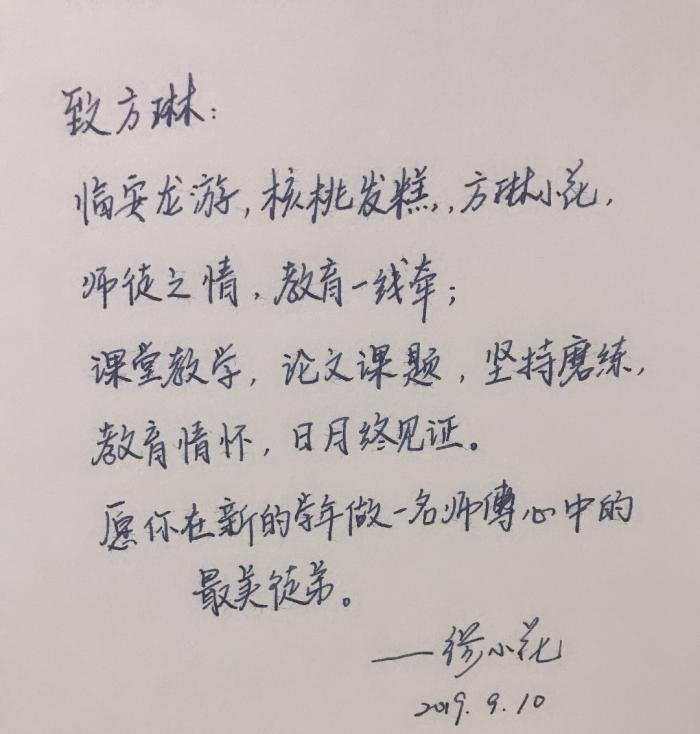 致方琳：
临安龙游，核桃发糕，方琳小花，
师徒之情，教育一线牵；
课堂教学，论文课题，坚持磨练，
教育情怀，日月终见证。
愿你在新的学年做一名师傅心中的
最美徒弟。
——缪小花
2019.9.10